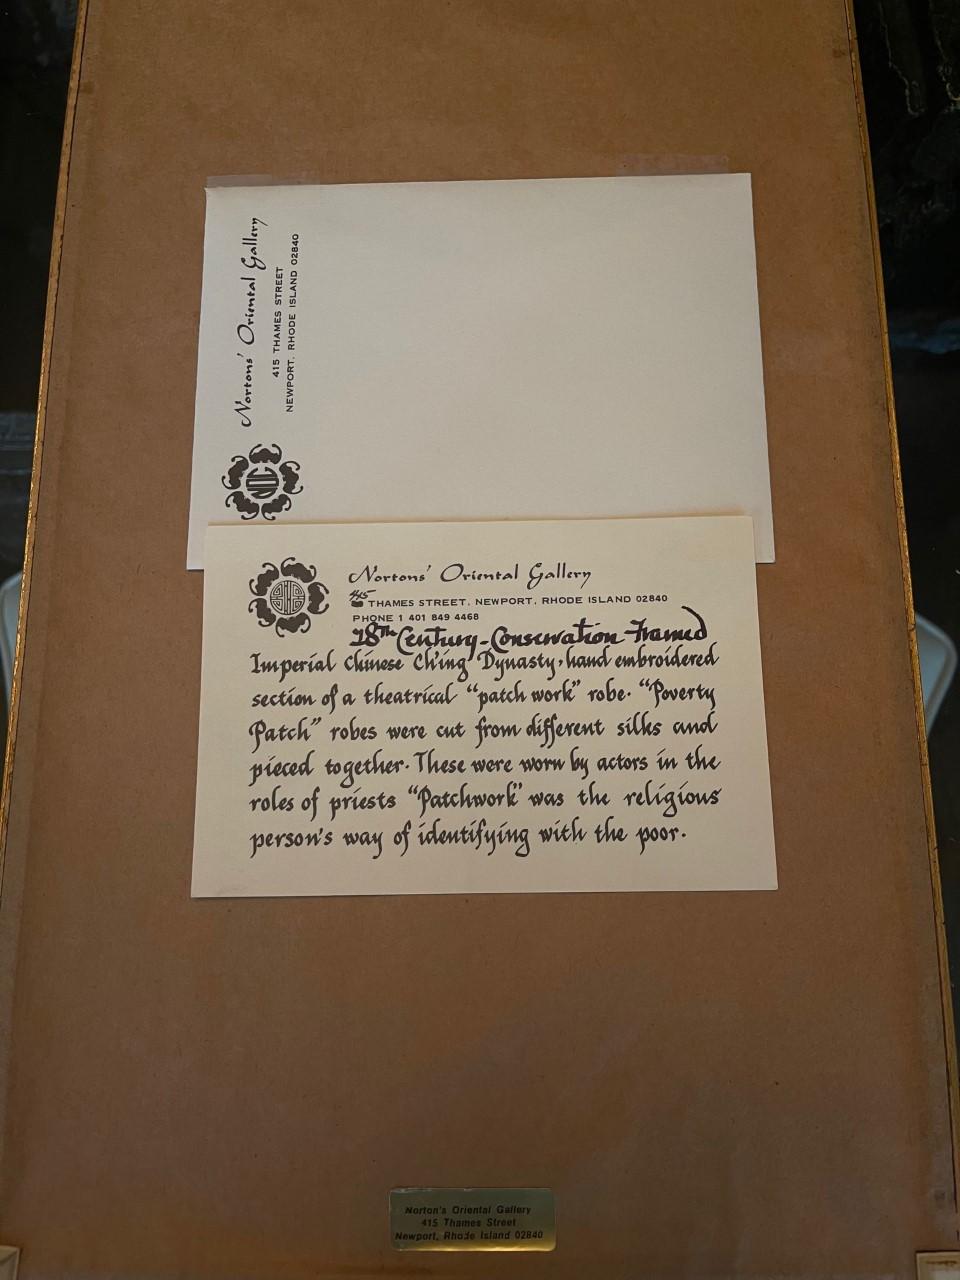 Nortons' Oriental Gallery
415 THAMES STREET
NEWPORT, RHODE ISLAND 02840
Nortons' Oriental Gallery
415 THAMES STREET, NEWPORT, RHODE ISLAND 02840
PHONE 1 401 849 4468
18th Century - Conservation Framed
Imperial Chinese Ch'ing Dynasty, hand embroidered
section of a theatrical "patch work" robe. "Poverty
Patch" robes were cut from different silks and
pieced together. These were worn by actors in the
roles of priests "Patchwork" was the religious
person's way of identifying with the poor.
Norton's Oriental Gallery
415 Thames Street
Newport, Rhode Island 02840